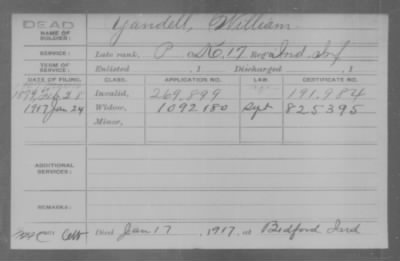 DEAD
NAME OF SOLDIER: Yandell, William
SERVICE: Late rank, P Co. K, 17 Reg't Ind. Inf
TERM OF SERVICE: Enlisted , 1 Discharged , 1
DATE OF FILING. CLASS. APPLICATION NO. LAW. CERTIFICATE NO.
1879 Feb. 28 Invalid, 269,899 191,984
1917 Jan 24 Widow, 1092180 Sept 825395
Minor,
ADDITIONAL SERVICES:
REMARKS:
C Died Jan 17, 1917, at Bedford Ind